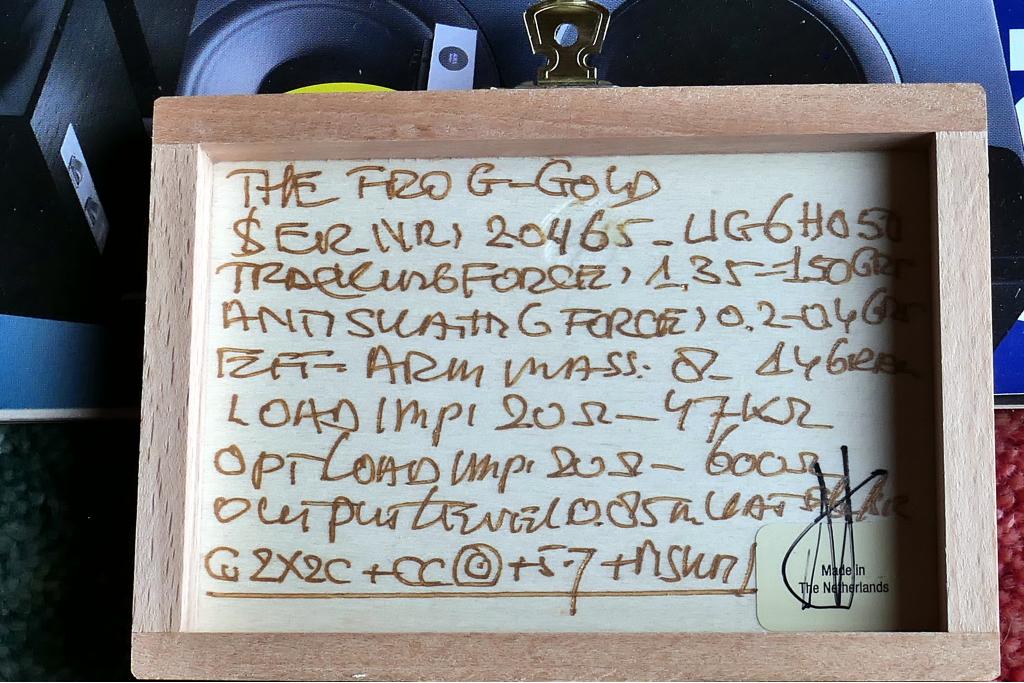 THE FROG-GOLD
SER NR: 20465-UG6H050
TRACKING FORCE: 1.35-150GR
ANTISKATING FORCE: 0.2-04GR
EFF- ARM MASS: 8- 14GRA
LOAD IMP: 20Ω-47KΩ
OPT-LOAD IMP: 20Ω- 600Ω
OUTPUT LEVEL 0.85m
G 2X2C +CC +5-7
Made in
The Netherlands